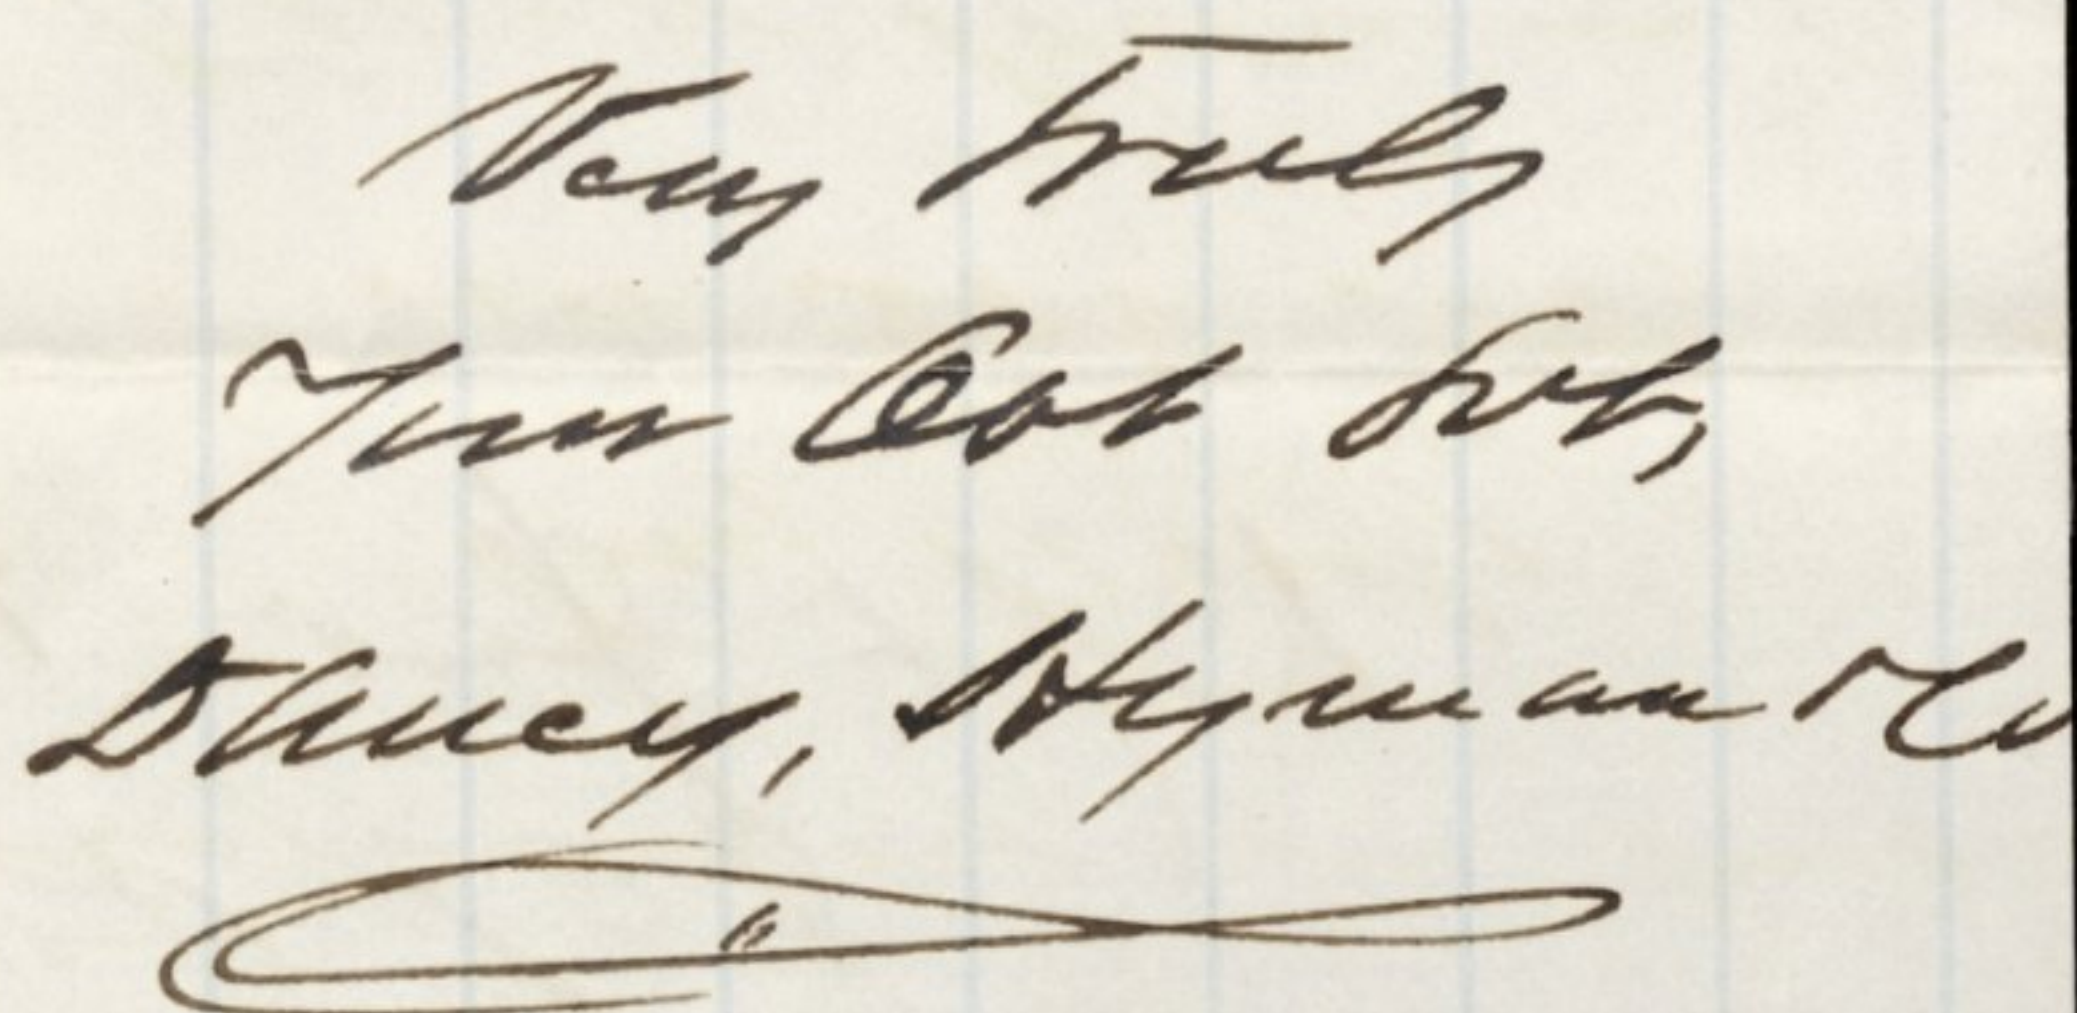 Very Truly
Your Obt Svt,
Dancy, Hyman & Co